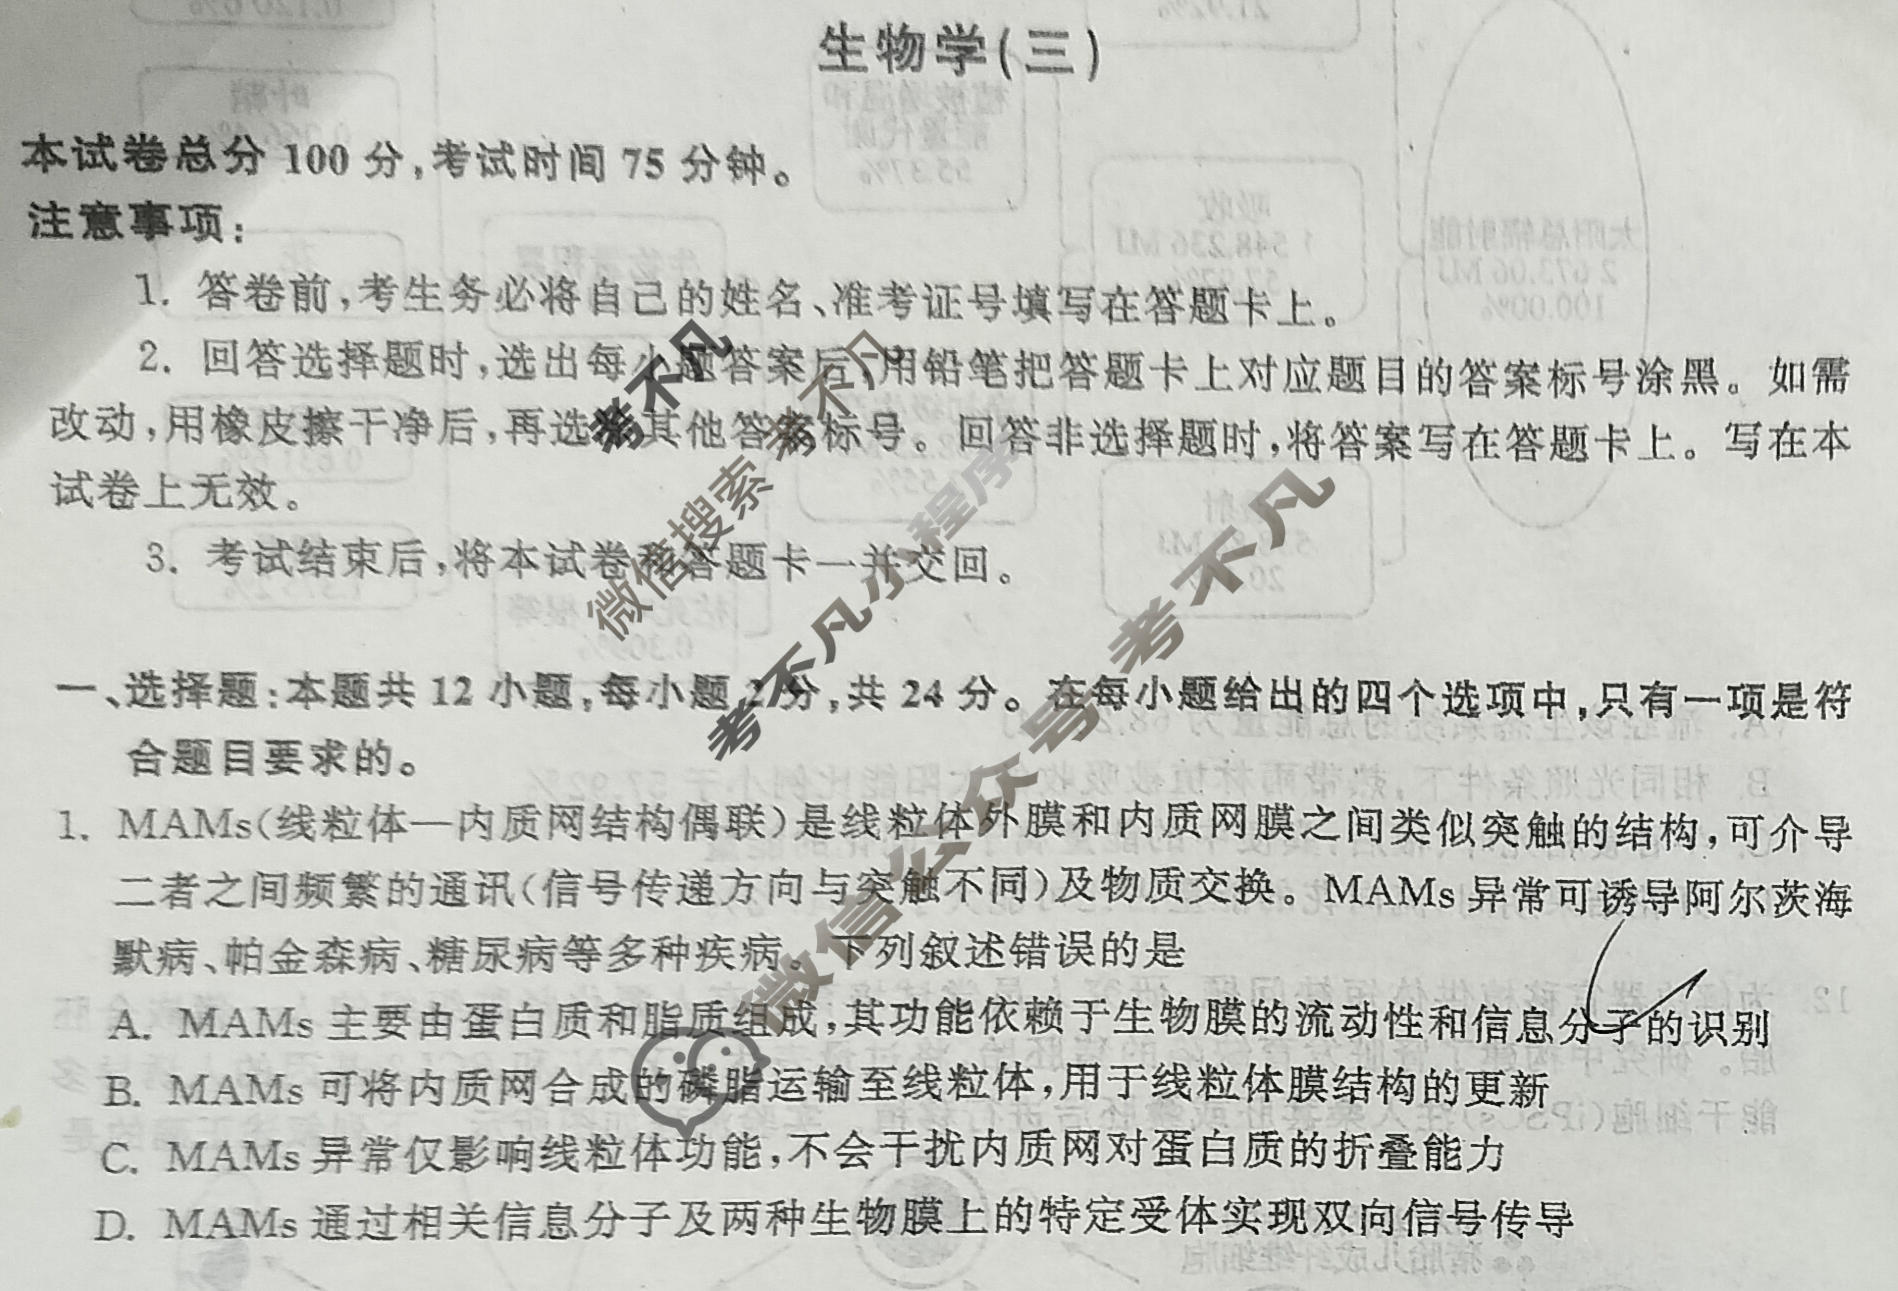 生物学(三)
本试卷总分 100 分,考试时间 75 分钟。
注意事项:
1. 答卷前,考生务必将自己的姓名、准考证号填写在答题卡上。
2. 回答选择题时,选出每小题答案后,用铅笔把答题卡上对应题目的答案标号涂黑。如需
改动,用橡皮擦干净后,再选涂其他答案标号。回答非选择题时,将答案写在答题卡上。写在本
试卷上无效。
3. 考试结束后,将本试卷和答题卡一并交回。
一、选择题:本题共 12 小题,每小题 2 分,共 24 分。在每小题给出的四个选项中,只有一项是符
合题目要求的。
1. MAMs(线粒体—内质网结构偶联)是线粒体外膜和内质网膜之间类似突触的结构,可介导
二者之间频繁的通讯(信号传递方向与突触不同)及物质交换。MAMs 异常可诱导阿尔茨海
默病、帕金森病、糖尿病等多种疾病。下列叙述错误的是
A. MAMs 主要由蛋白质和脂质组成,其功能依赖于生物膜的流动性和信息分子的识别
B. MAMs 可将内质网合成的磷脂运输至线粒体,用于线粒体膜结构的更新
C. MAMs 异常仅影响线粒体功能,不会干扰内质网对蛋白质的折叠能力
D. MAMs 通过相关信息分子及两种生物膜上的特定受体实现双向信号传导
考不凡
微信搜索 考不凡
考不凡小程序
微信公众号考不凡